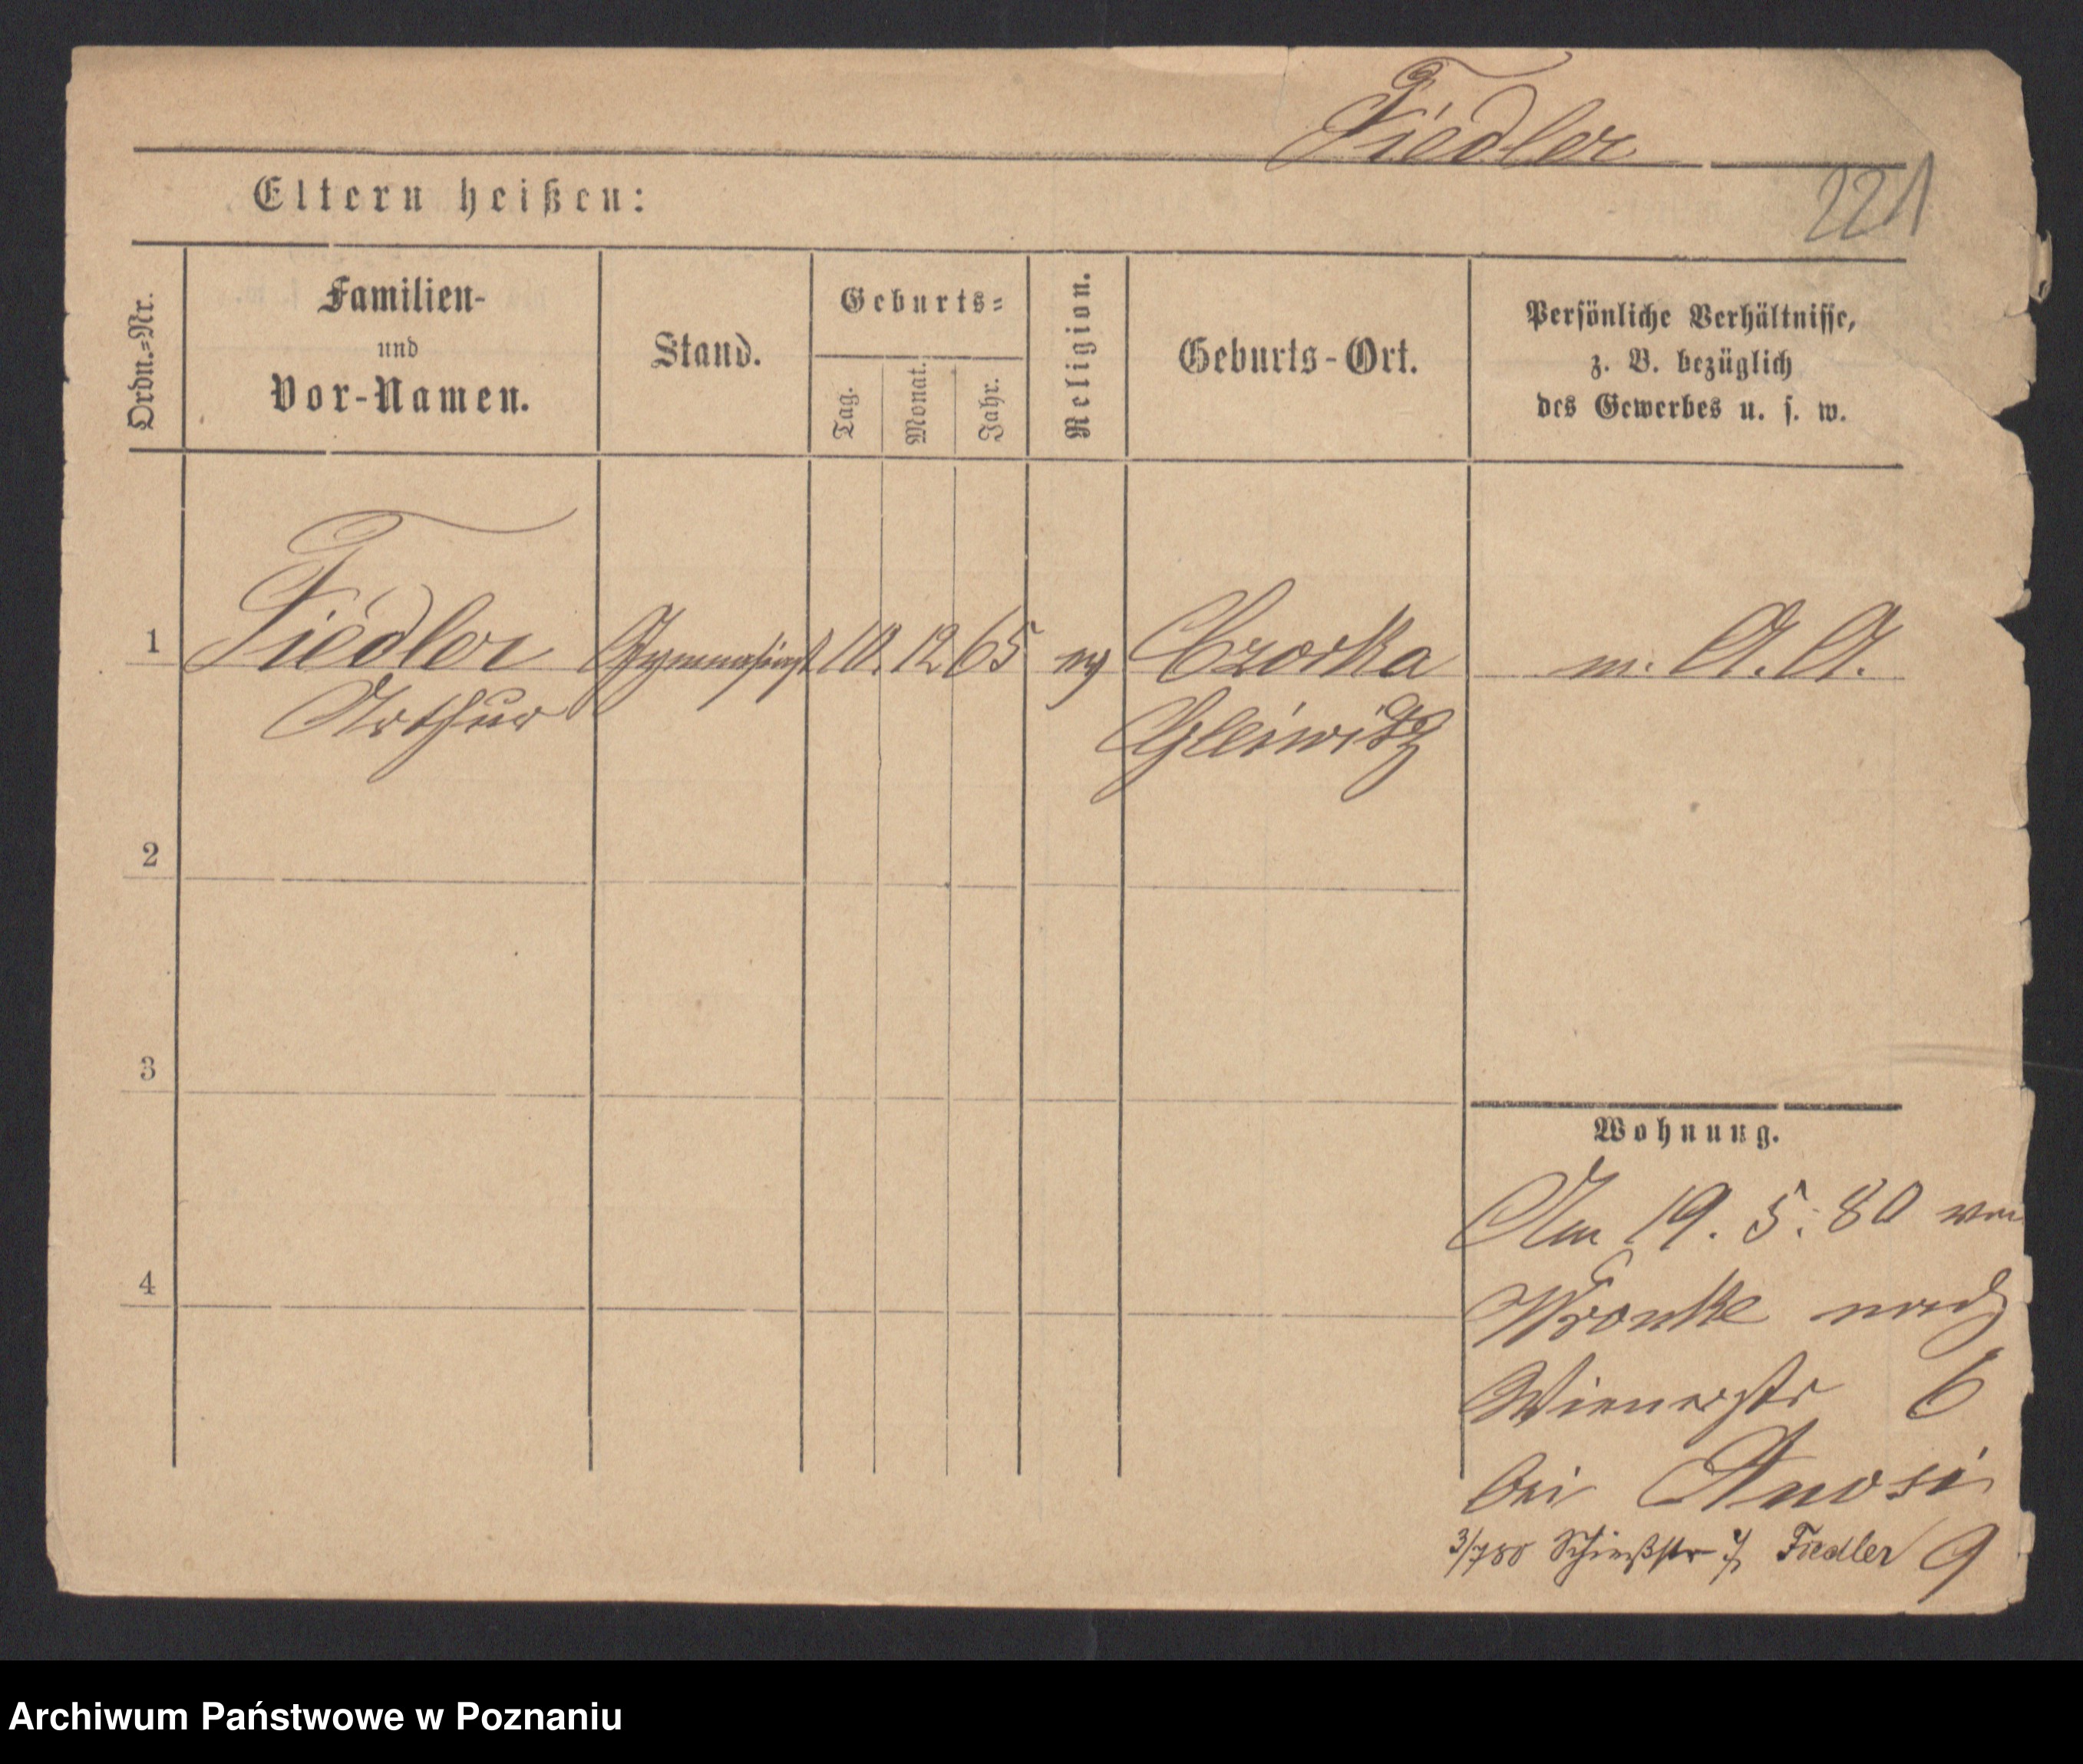 Fiedler
221
Eltern heißen:
Ordn.=Nr.
Familien-
und
Vor-Namen.
Stand.
Geburts=
Tag.
Monat.
Jahr.
Religion.
Geburts-Ort.
Persönliche Verhältnisse,
z. B. bezüglich
des Gewerbes u. s. w.
1 Fiedler Gymnasiast 10. 12 65 m. A. A.
Arthur Gleiwitz
2
3
4
Wohnung.
Am 19. 5. 80 von
Wronke nach
Wienerstr 6
bei
3/7 80 Schießstr Fiedler 9
Archiwum Państwowe w Poznaniu